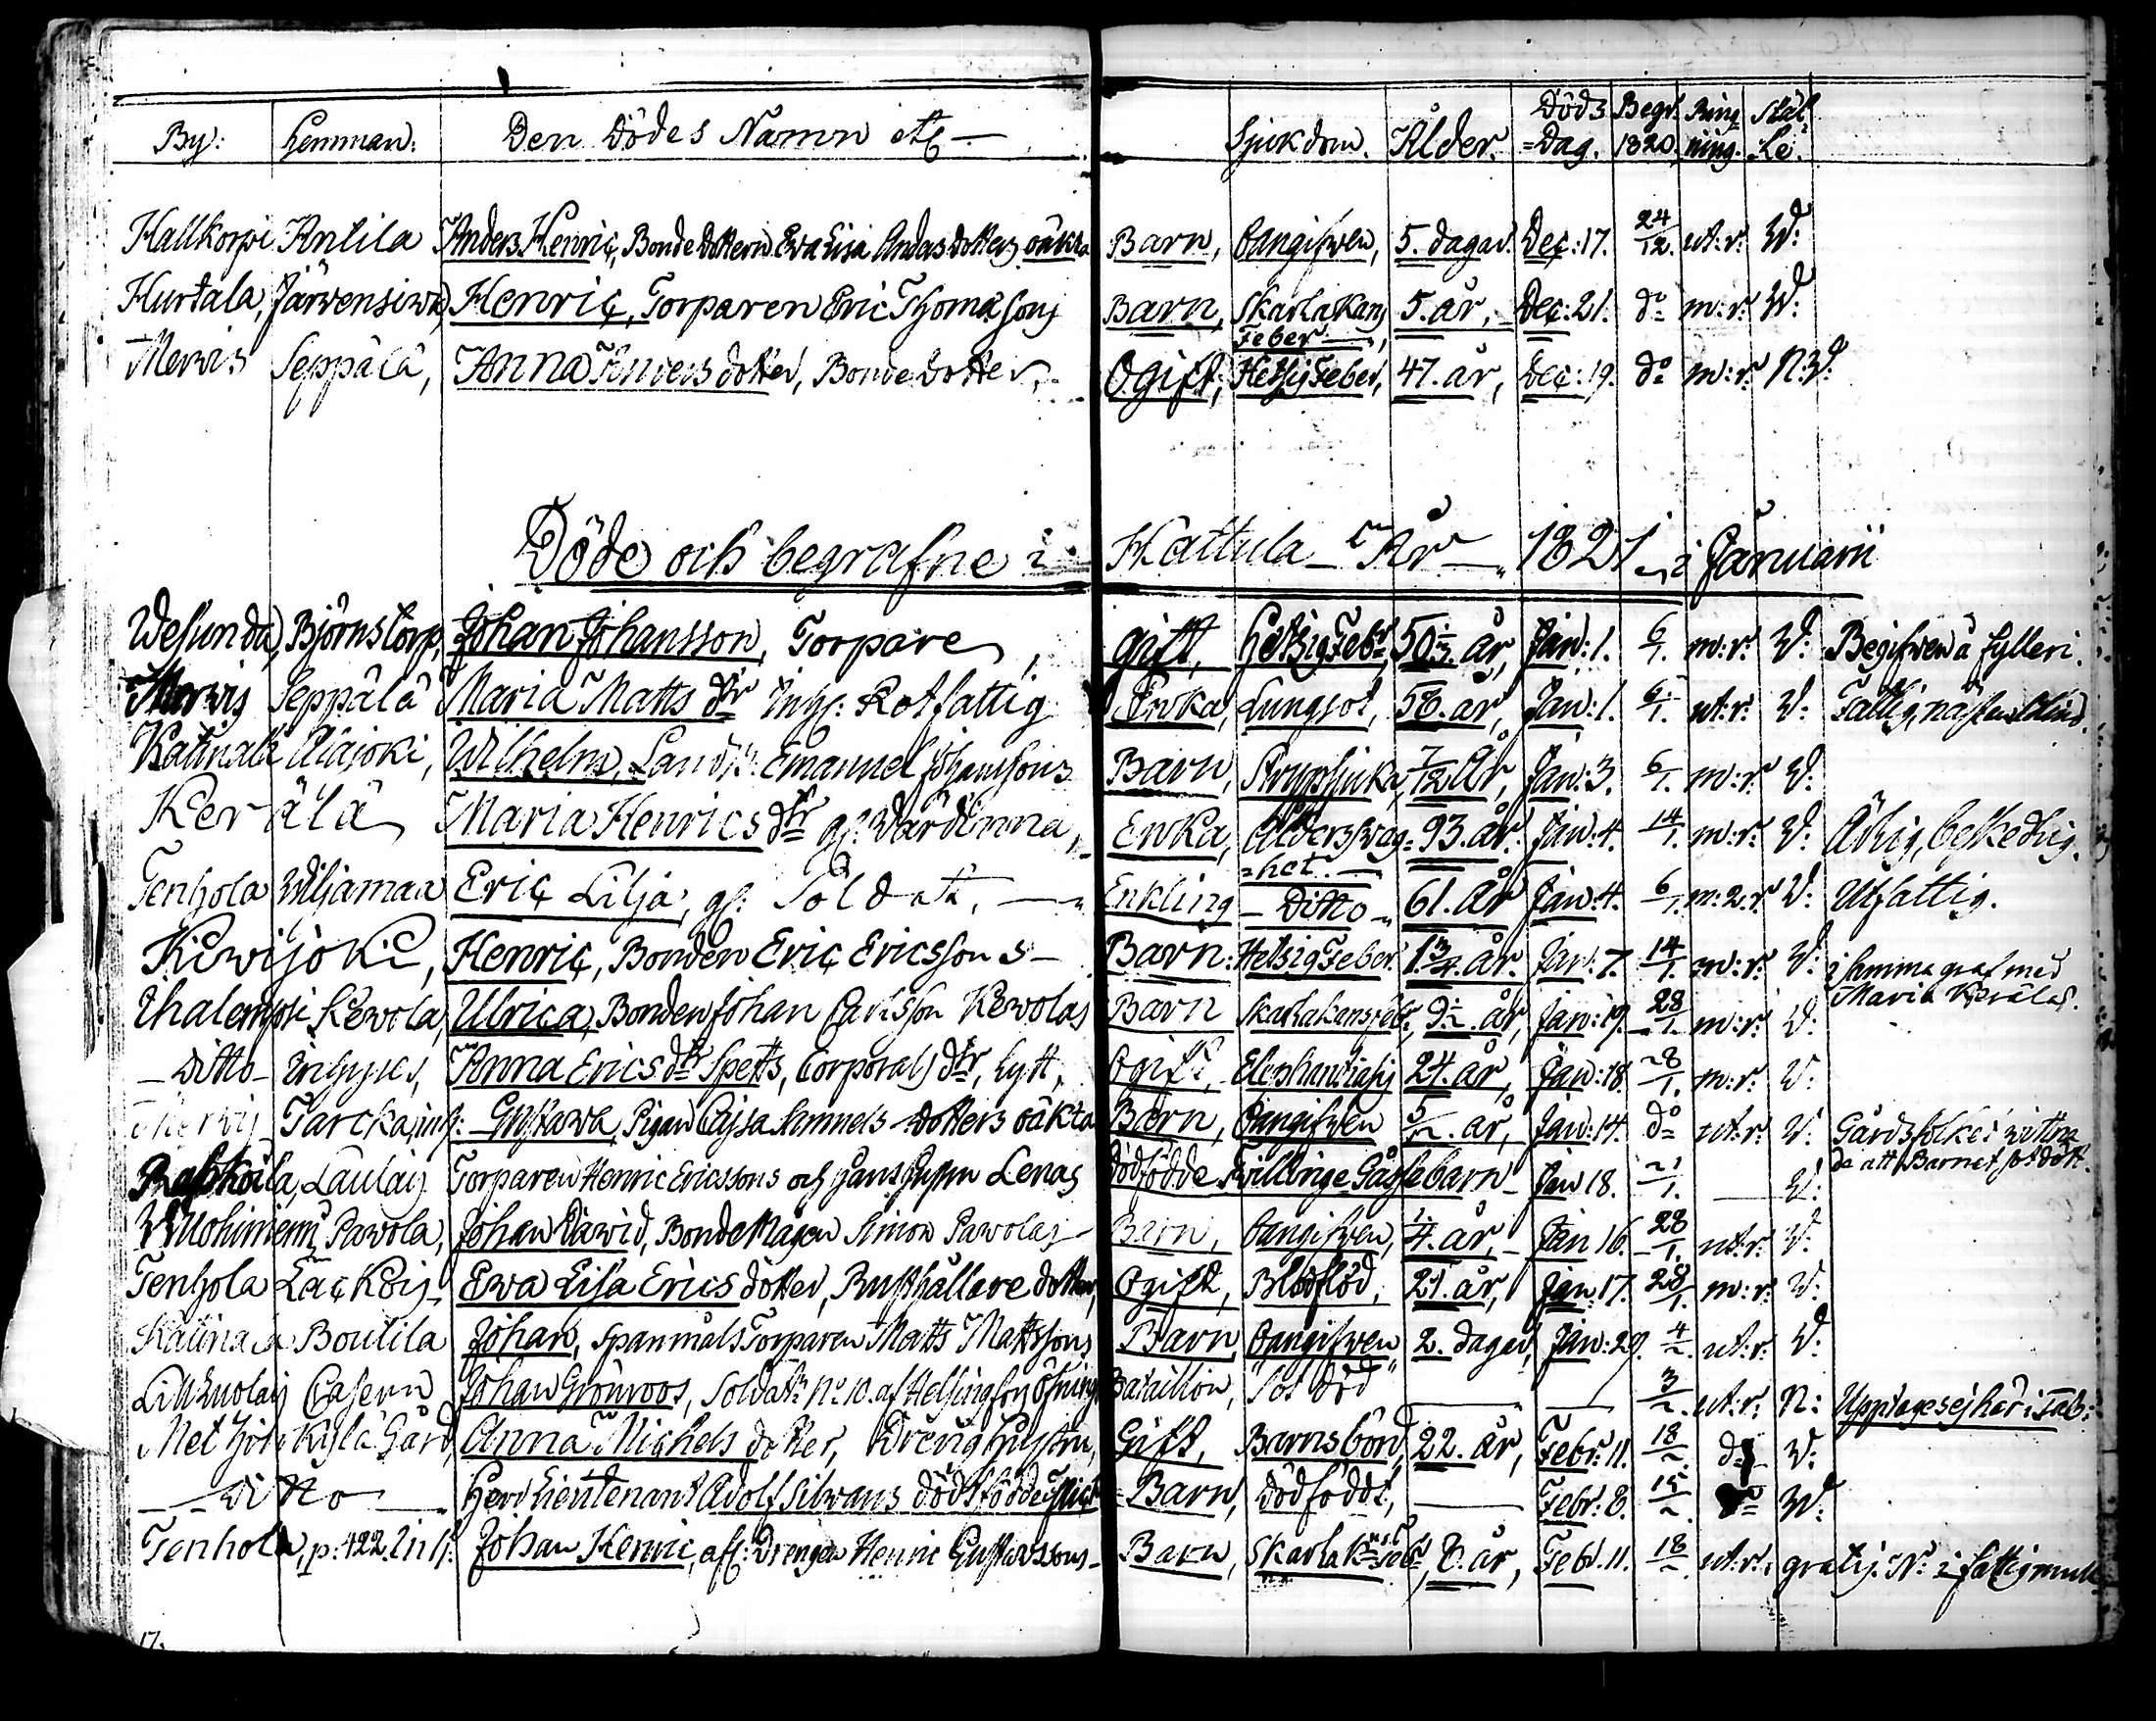 By: Hemman: Den Dödes Namn etc — Sjukdom. Ålder. Döds =Dag. Begr. 1820. Ring ning. Stäl le.
Hallkorpi Antila Anders Henric, Bonde Dottern Eva Lisa Anders dotters oäkta Barn, Oangifven, 5. dagar. Dec: 17. 24/12. ut: r: W:
Hurtala, Järvensivu Henric, Torparen Eric Thomæsons Barn, Skarlakans Feber —, 5. år, Dec: 21. do m: r: W:
Mervis Seppälä, Anna Anders dotter, Bonde Dotter, Ogift, Hetsig Feber, 47. år, Dec: 19. do m: r: N:W:
Döde och begrafne i Hattula År 1821 i Januarii
Wesunda, Björnstorp, Johan Johansson, Torpare, gift, Hetsig Febr, 50 år, Jan: 1. 6/1. m: r: W: Begifven å fylleri.
Mervis Seppälä Maria Matts dr Inhs: Rotfattig Enka, Lungsot, 58. år, Jan: 1. 6/1. ut: r: W: Fattig, nästan blind.
Kattinala Alajoki, Wilhelm, Emanuel Johanssons Barn, Strypsjuka, 7/12 År, Jan: 3. 6/1. m: r: W:
Kerälä Maria Henrics dr gl: Värdinna, Enka, Ålderssvag= het. — 93. år. Jan: 4. 14/1. m: r: W: Ärlig, beskedlig.
Tenhola Wiljamaa Eric Lilja, gl: Soldat, — Enkling — Ditto — 61. år Jan: 4. 6/1. m: 2. r: W: Utfattig.
Kiwijoki, Henric, Bonden Eric Ericssons — Barn: Hetsig Feber. 1 3/4 år. Jan: 7. 14/1. m: r: W: i samma graf med Maria Kerälas.
Ihalempi Kewola, Ulrica, Bonden Johan Carlsson Kewolas Barn Skarlakansfebr, år, Jan: 19. 28/1. m: r: W:
— Ditto — Inhyses, Anna Erics dr Spetts, Corporals dr, Lytt, Ogift, Elephantiasis 24. år, Jan: 18. 28/1. m: r: W:
Mervis Tarcka, inhs: Gustava, Pigan Cajsa Samuels dotters oäkta Barn, Oangifven år, Jan: 14. do ut: r: W: Gårdsfolket wittna de att Barnet sot dödt.
Laulais Torparen Henric Ericssons och hans hustru Lenas Dödfödde Twillinge Gåssebarn — Jan 18. 21/1. — W:
Wuohiniemi, Pawola, Johan Dawid, Bonde Mågen Simon Pawolas — Barn, Oangifven, år, Jan 16. 28/1. ut: r: W:
Tenhola Lackois, Ewa Lisa Erics dotter, Rusthållare dotter, Ogift, Blodflöd, 21. år, Jan: 17. 28/1. m: r: W:
Katina Boutila Johan, Spanmåls Torparen Matts Mattssons Barn Oangifven 2. dagar, Jan: 29. 4/2. ut: r: W:
Casern Johan Grönroos, Soldat No 10. af Helsingfors Bataillon, Sot död — — 3/2. ut: r: N: Upptages ej här i Tab:
Kylä Gård, Anna Michels dotter, Dreng hustru, Gift, Barnsbörd, 22. år, Febr: 11. 18/2. do W:
— Ditto — Herr Lieutenant Adolf Silwans dödsfödde Flick= Barn, Dödfödd, — Febr: 8. 15/2. W:
Tenhola, p: 422. Inh: Johan Henric, afl: Drengen Henric Gustafssons — Barn, Skarlak: Feb, 8. år, Feb. 11. 18/2. ut: r: gratis. N: i fattigmull
17.